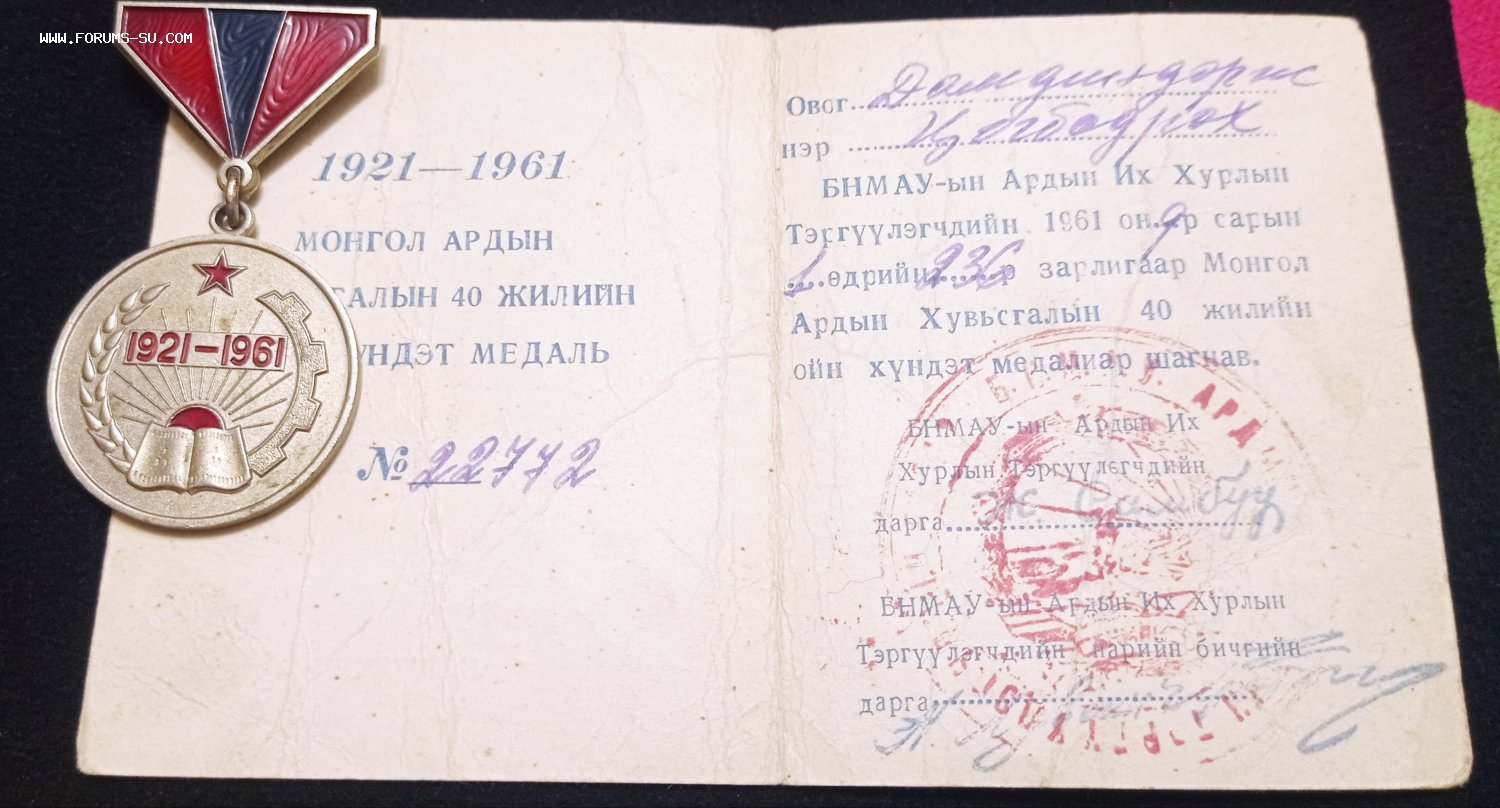 WWW.FORUMS-SU.COM
1921-1961
1921—1961
МОНГОЛ АРДЫН
ГАЛЫН 40 ЖИЛИЙН
ҮНДЭТ МЕДАЛЬ
№ 22772
Овог Дамдиндорж
нэр
БНМАУ-ын Ардын Их Хурлын
Тэргүүлэгчдийн 1961 он 9 р сарын
1 өдрийн 236 р зарлигаар Монгол
Ардын Хувьсгалын 40 жилийн
ойн хүндэт медалиар шагнав.
БНМАУ-ын Ардын Их
Хурлын Тэргүүлэгчдийн
дарга Ж. Самбуу
БНМАУ-ын Ардын Их Хурлын
Тэргүүлэгчдийн нарийн бичгийн
дарга